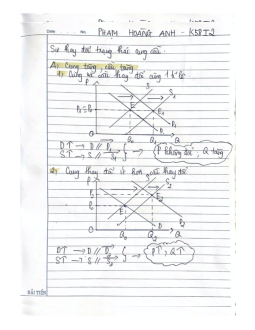 PHẠM HOÀNG ANH - K58T2
Sự thay đổi trạng thái cung cầu
1, Cung tăng, cầu tăng
a) Cung và cầu thay đổi cùng 1 tỉ lệ
P
S
S₁
E
E₁
D
D₁
O
Q₀
Q₁
Q
D↑ → D // D₁
S↑ → S // S₁
} → P không đổi, Q tăng
Cung thay đổi ít hơn cầu thay đổi
P
S
S₂
E
E₂
D
D₂
O
Q₀
Q₂
Q
D↑ → D // D₂
S↑ → S // S₂
} → P↑, Q↑
HẢI TIẾN